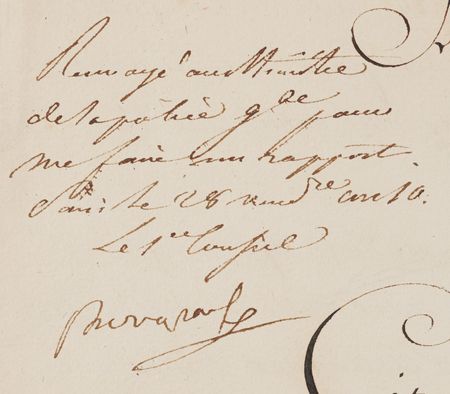 Renvoyé au Ministre
de la police gle pour
me faire un rapport.
Paris le 28 vendre an 10.
Le 1er Consul
Bonaparte